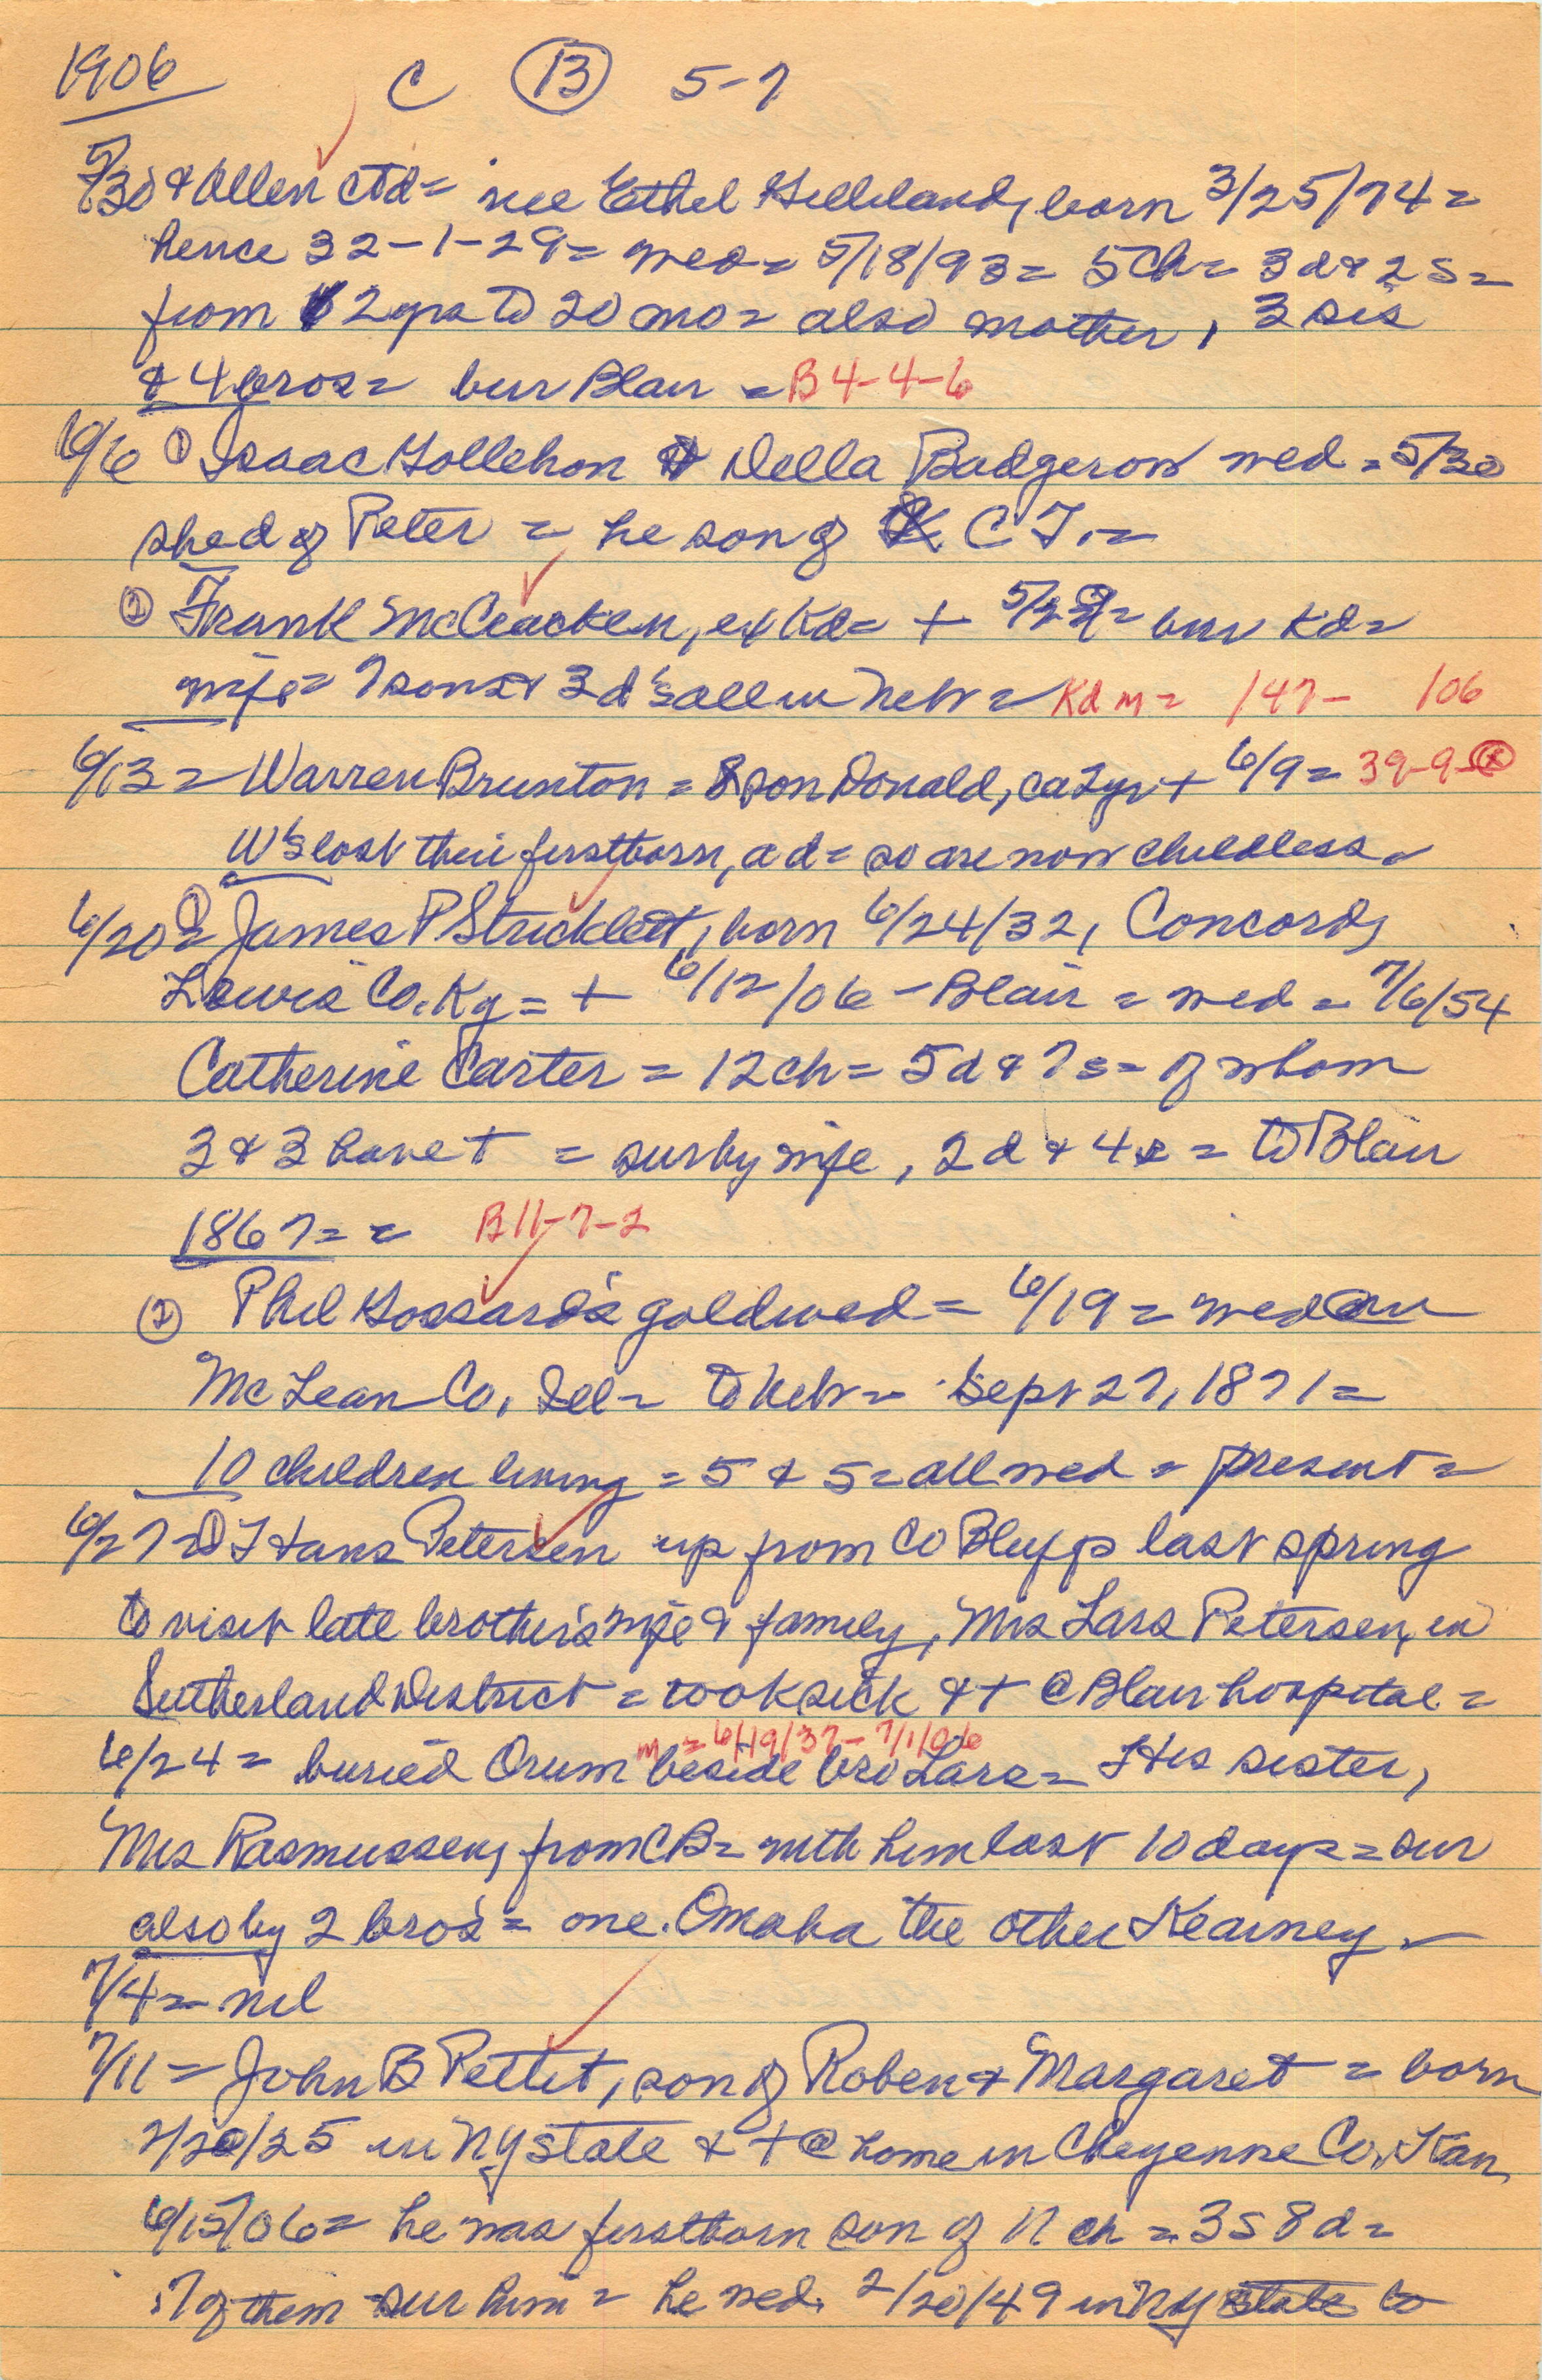 1906 C 13 5-7
5/30 & Allen ctd = nee Ethel Gilliland, born 3/25/74 =
hence 32-1-29 = wed = 5/18/93 = 5 ch = 3 d & 2 s =
from 12 yrs to 20 mo = also mother, 3 sis
& 4 bros = bur Blair = B 4-4-6
6/6 ① Isaac Gollehon & Della Badgerow wed = 5/30
she d of Peter = he son of C T. =
② Frank McCracken, ex Kd = + 5/29 = bur Kd =
wife = 7 sons & 3 d's all in Nebr = Kd m = 147- 106
6/13 = Warren Brunton = son Donald, ca 2 yr + 6/9 = 39-9-
W's lost their firstborn, a d = so are now childless =
6/20 = ① James P Stricklett, born 6/24/32, Concord,
Lewis Co. Ky = + 6/12/06 - Blair = wed = 7/6/54
Catherine Carter = 12 ch = 5 d & 7 s = of whom
3 & 3 have + = sur by wife, 2 d & 4 s = to Blair
1867 = = B 11-7-2
② Phil Gossard's gold wed = 6/19 = wed in
McLean Co, Ill = to Nebr = Sept 27, 1871 =
10 children living = 5 & 5 = all wed = present =
6/27 = ① Hans Petersen up from Co Bluffs last spring
to visit late brother's wife & family, Mrs Lars Petersen, in
Sutherland District = took sick & + @ Blair hospital =
m = 6/19/37 - 7/1/06
6/24 = buried Orum beside bro Lars = His sister,
Mrs Rasmussen, from CB = with him last 10 days = sur
also by 2 bro's = one Omaha the other Kearney =
7/4 = nil
7/11 = John B Pettit, son of Robert & Margaret = born
2/20/25 in NY state & + @ home in Cheyenne Co, Kan,
6/15/06 = he was firstborn son of 11 ch = 3 s 8 d =
7 of them sur him = he wed. 2/20/49 in NY state to